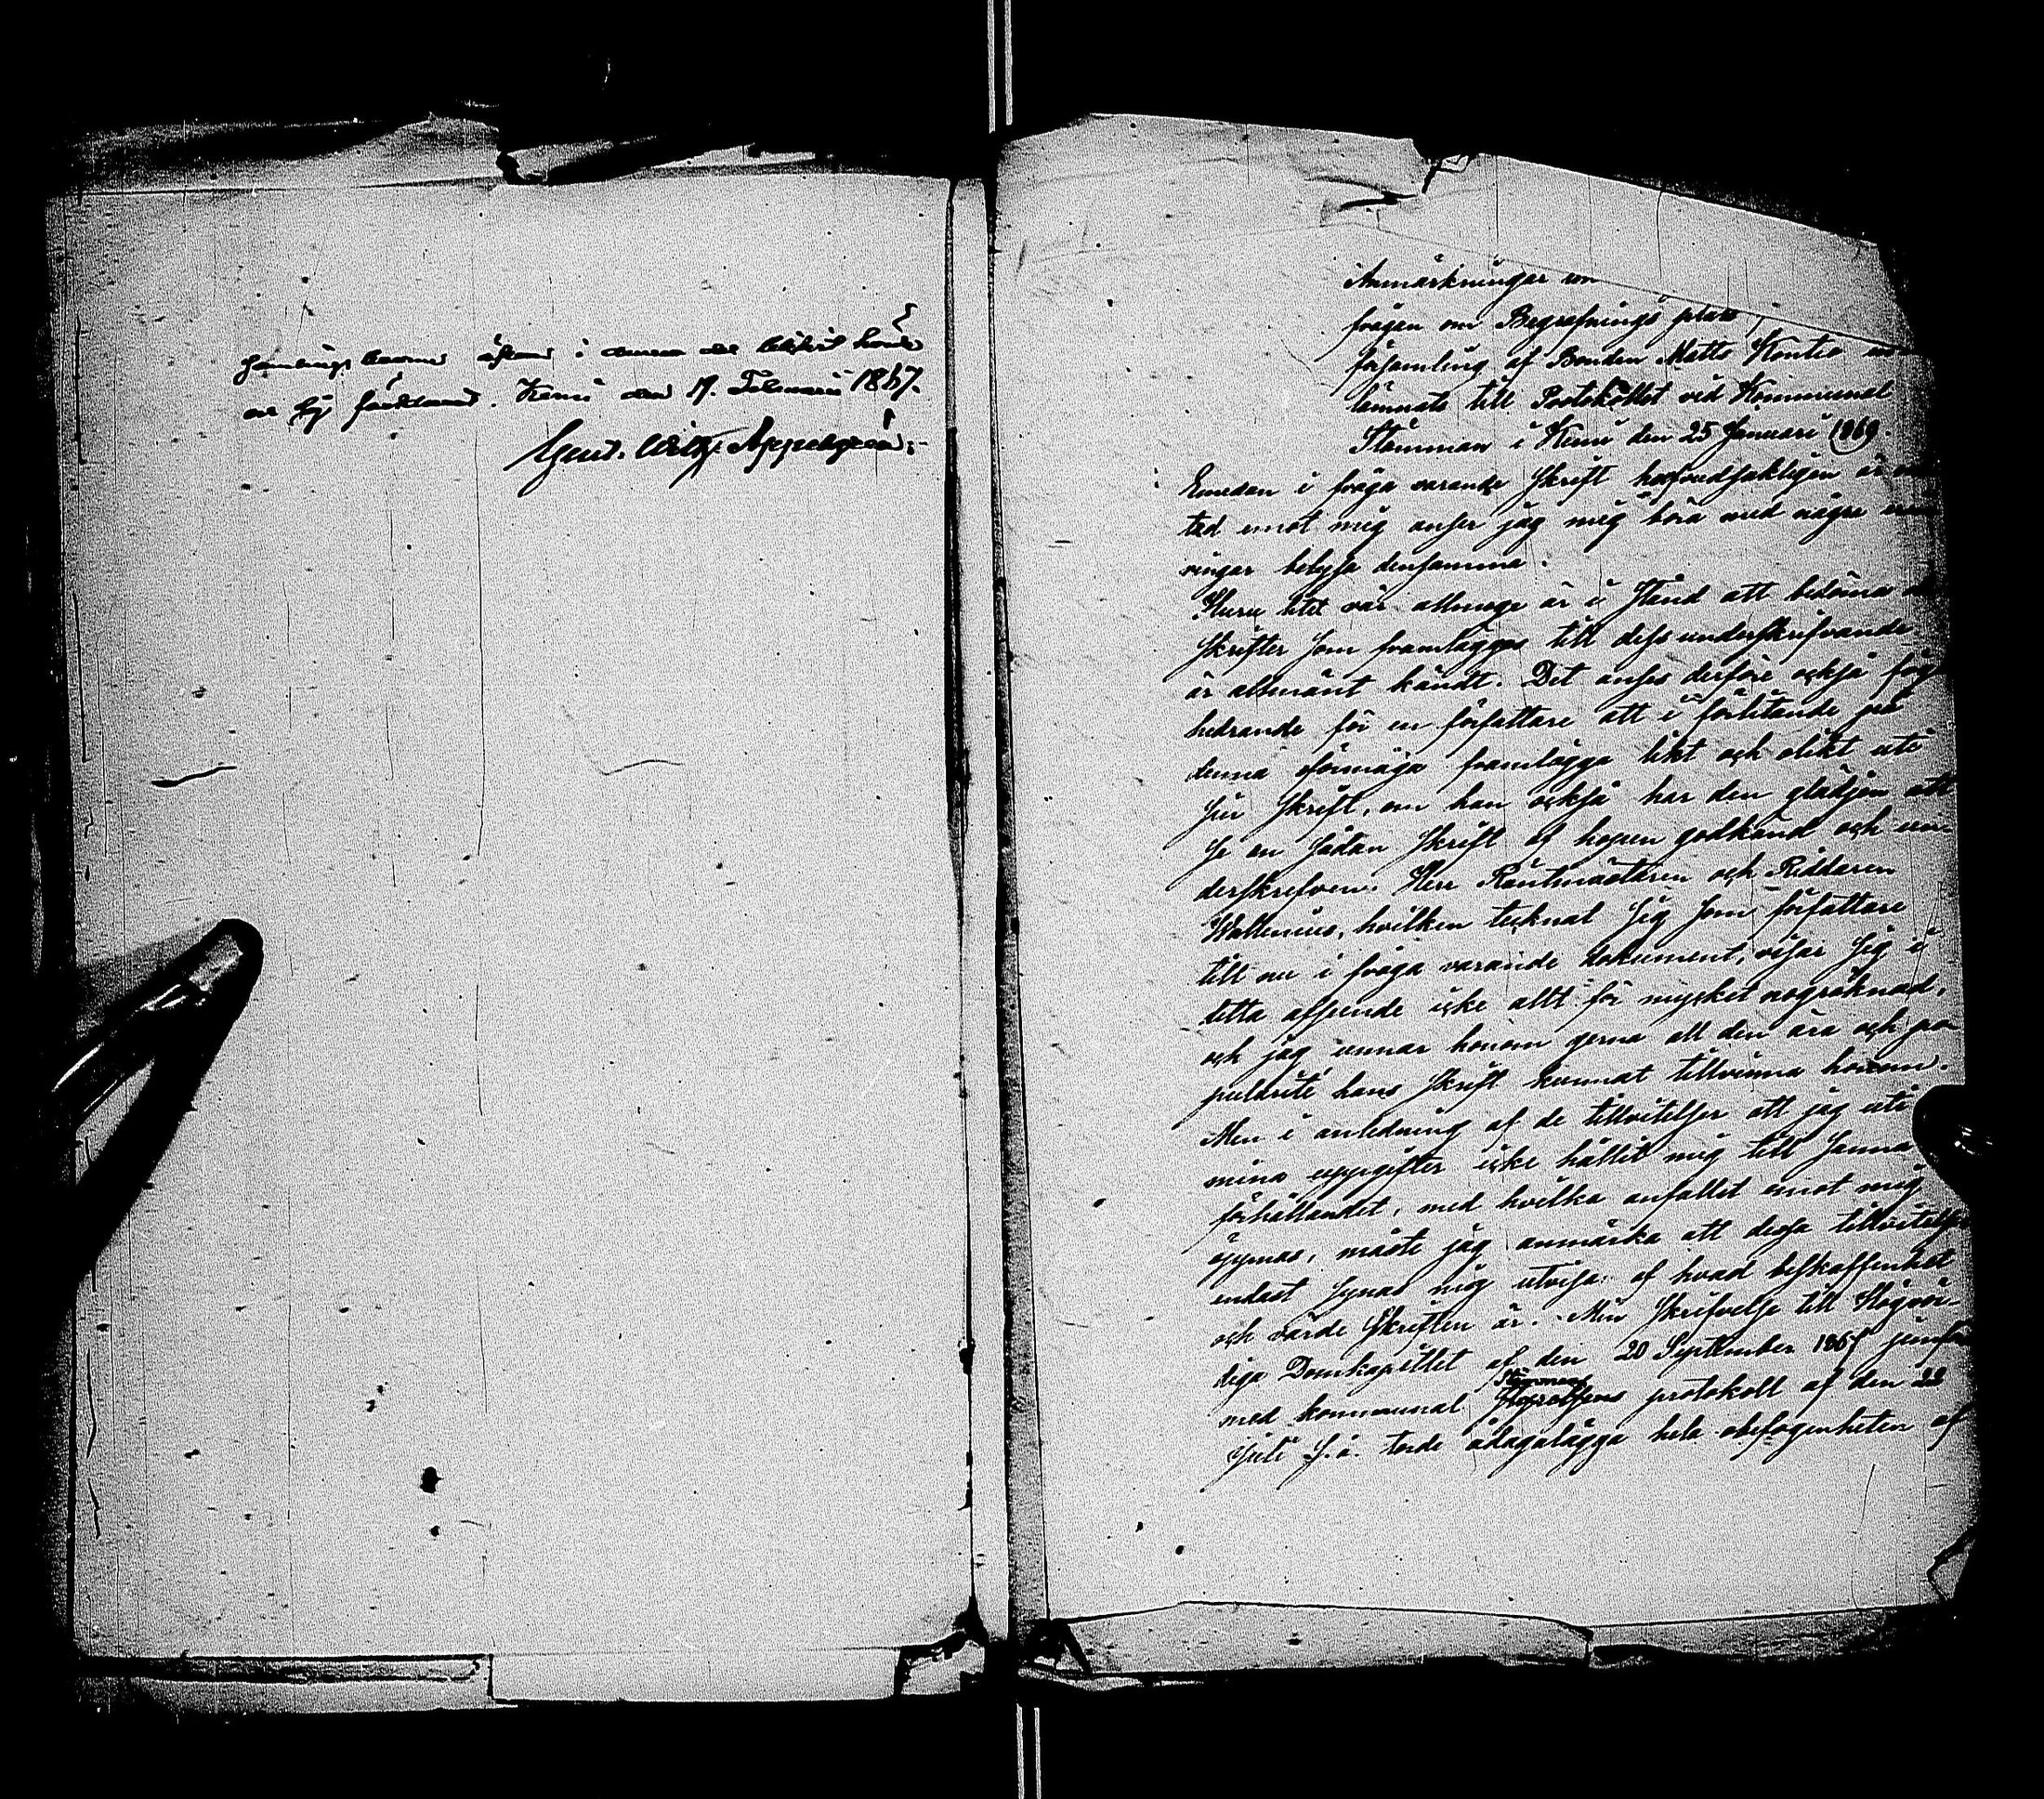 församlings barnen äfven i denna del blifvit hörde
och ej försummade. Kemi den 17. Februarii 1867.
Gust. Wilh. Appelgren.
Anmärkningar vid
frågan om Begrafnings plats
församling af Bonden Matts Kontio
lämnats till Protokollet vid Kommunal
Stämman i Kemi den 25 Januari 1869.
Emedan i fråga varande skrift hufvudsakligen är
tad emot mig anser jag mig böra med några
ringar belysa densamma.
Huru litet vår allmoge är i stånd att bedöma
skrifter som framlägges till dess underskrifvande
är allmänt kändt. Det anses derföre också för
hedrande för en författare att i förlitande på
denna oförmåga framlägga likt och olikt uti
sin skrift, om han också har den glädjen att
se en sådan skrift af hopen godkänd och un-
derskrefven. Herr Räntmästaren och Riddaren
Wallenius, hvilken tecknat sig som författare
till nu i fråga varande dokument, visar sig i
detta afseende icke allt för mycket nogräknad,
och jag unnar honom gerna all den ära och po
pularité hans skrift kunnat tillvinna honom.
Men i anledning af de tillvitelser att jag uti
mina uppgifter icke hållit mig till sanna
förhållandet, med hvilka anfallet emot mig
öppnas, måste jag anmärka att dessa tillvitelser
endast synas mig utvisa af hvad beskaffenhet
och värde skriften är. Min skrifvelse till Högvör-
diga Domkapitlet af den 20 September 186 jemförd
med kommunal Stämmans protokoll af den 22
Juli s.å. torde ådagalägga hela obefogenheten af